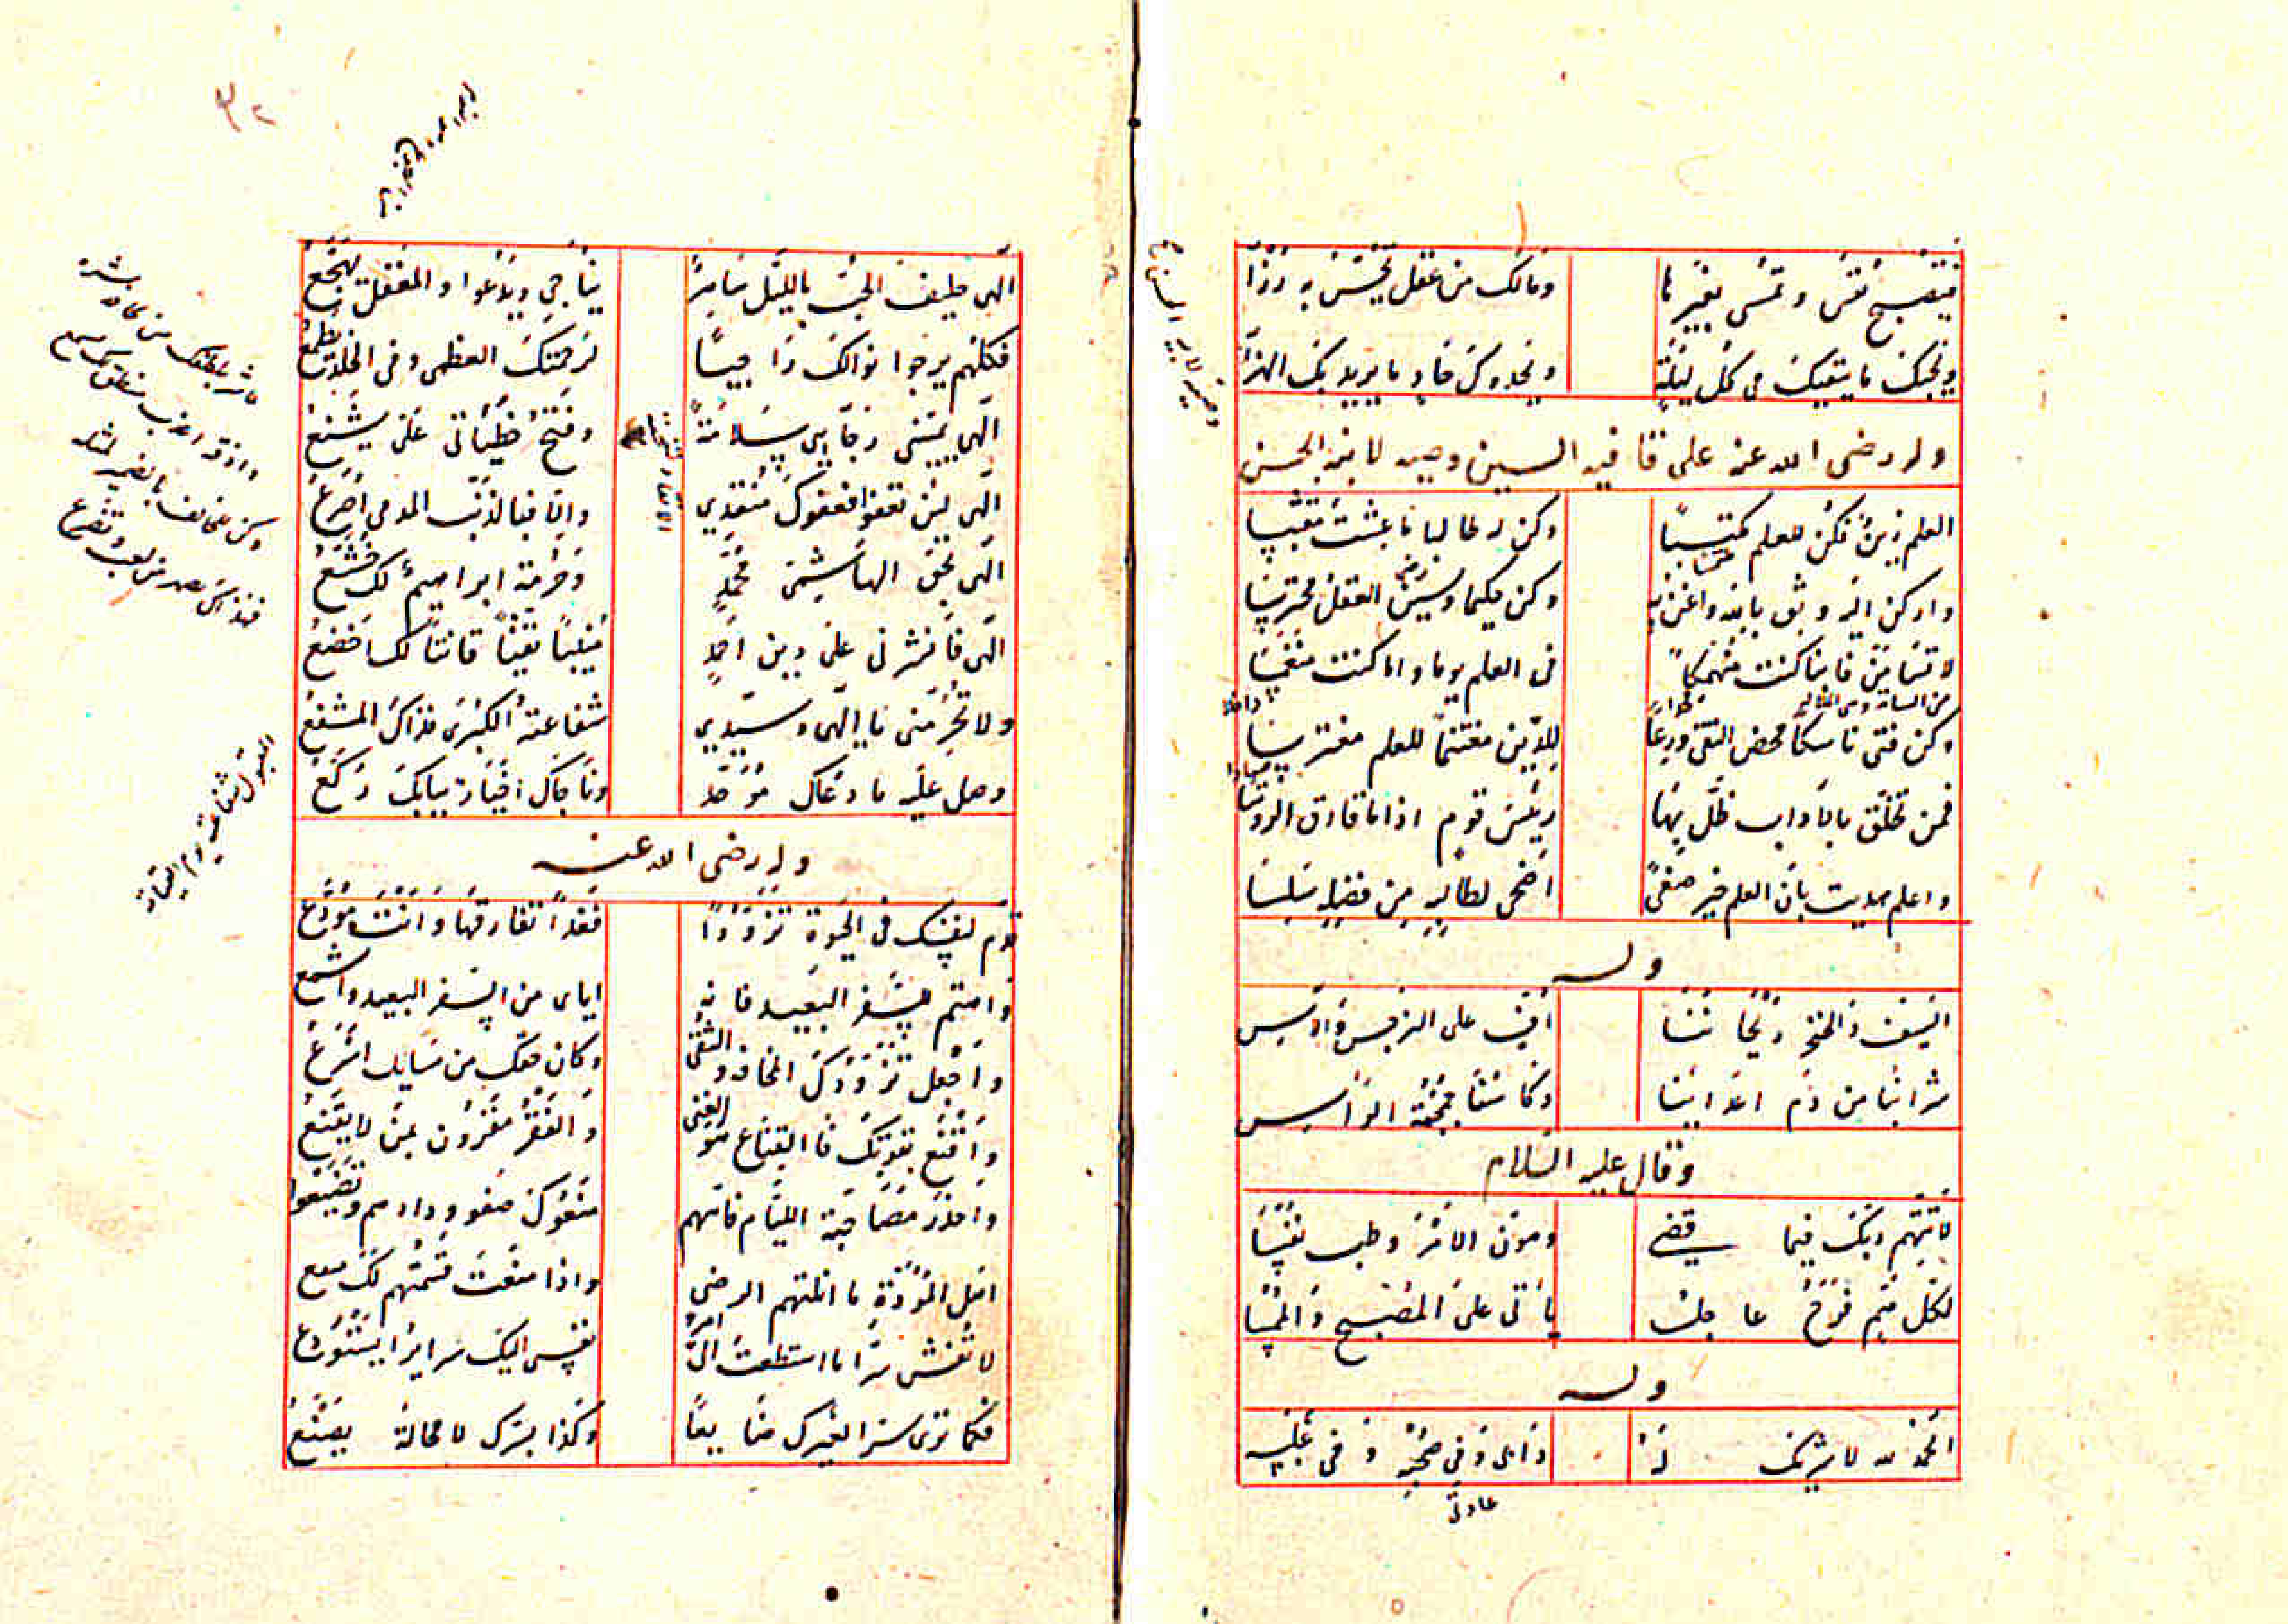 فتصبح نفس وتمسى بغيرها ومالك من عقل تحس به رزا
ويحبك ما يتقيك فى كل ليلة ويحدوك حاد ما يريد بك الهزا
وله رضى الله عنه على قافيه السين وصيه لابنه الحسن
العلم زين فكن للعلم مكتسبا وكن له طالبا ما عشت مقتبسا
واركن اليه وثق بالله واغن به وكن حليما رزين العقل محترسا
لا تسأمن فاما كنت منهمكا فى العلم يوما واما كنت منغمسا
وكن فتى ناسكا محض التقى ورعا للدين مغتنما للعلم مفترسا
فمن تخلق بالآداب ظل بها رئيس قوم اذا ما فارق الروسا
واعلم هديت بأن العلم خير صفى اضحى لطالبه من فضله سلسا
وله
السيف والخنجر ريحاننا اف على النرجس والآس
شرابنا من دم اعدائنا وكاسنا جمجمة الراس
وقال عليه السلام
لا تتهم ربك فيما قضى وهون الامر وطب نفسا
لكل هم فرج عاجل يأتى على المصبح والممسا
وله
الحمد لله لا شريك له دابى وفى صبحه وفى غلسه
عادتى
٣٢
الهى حليف الحب بالليل سامرا يناجى ويدعوا والمغفل يهجع
فكلهم يرجوا نوالك راجيا لرحمتك العظمى وفى الخلد يطمع
الهى يمنينى رجايى سلامة وقبح خطيآتى على يشنع
الهى لئن تعفوا فعفوك منقذى والا فبالذنب المدمر اصرع
الهى بحق الهاشمى محمد وحرمة ابراهيم لك خشع
الهى فانشرنى على دين احمد منيبا تقيا قانتا لك اخضع
ولا تحرمنى يا الهى وسيدى شفاعته الكبرى فذاك المشفع
وصل عليه ما دعاك موحد وناجاك اخيار ببابك ركع
وله رضى الله عنه
قدم لنفسك فى الحيوة تزودا فغدا تفارقها وانت مودع
واهتم للسفر البعيد فانه اياى من السفر البعيد واشسع
واجعل تزودك المخافة والتقى وكان حتفك من مسائك اسرع
واقنع بقوتك فالقناع هو الغنى والفقر مقرون بمن لا يقنع
واحذر مصاحبة اللئام فانهم منعوك صفو ودادهم وتضيعوا
اهل المودة ما انلتهم الرضى واذا منعت فسمتهم لك منقع
لا تفش سرا ما استطعت الى امرء يفشى اليك سرائرا يستودع
فكما ترى بسر غيرك صانعا وكذا بسرك لا محالة يصنع
المقبول شفاعته يوم القيامة